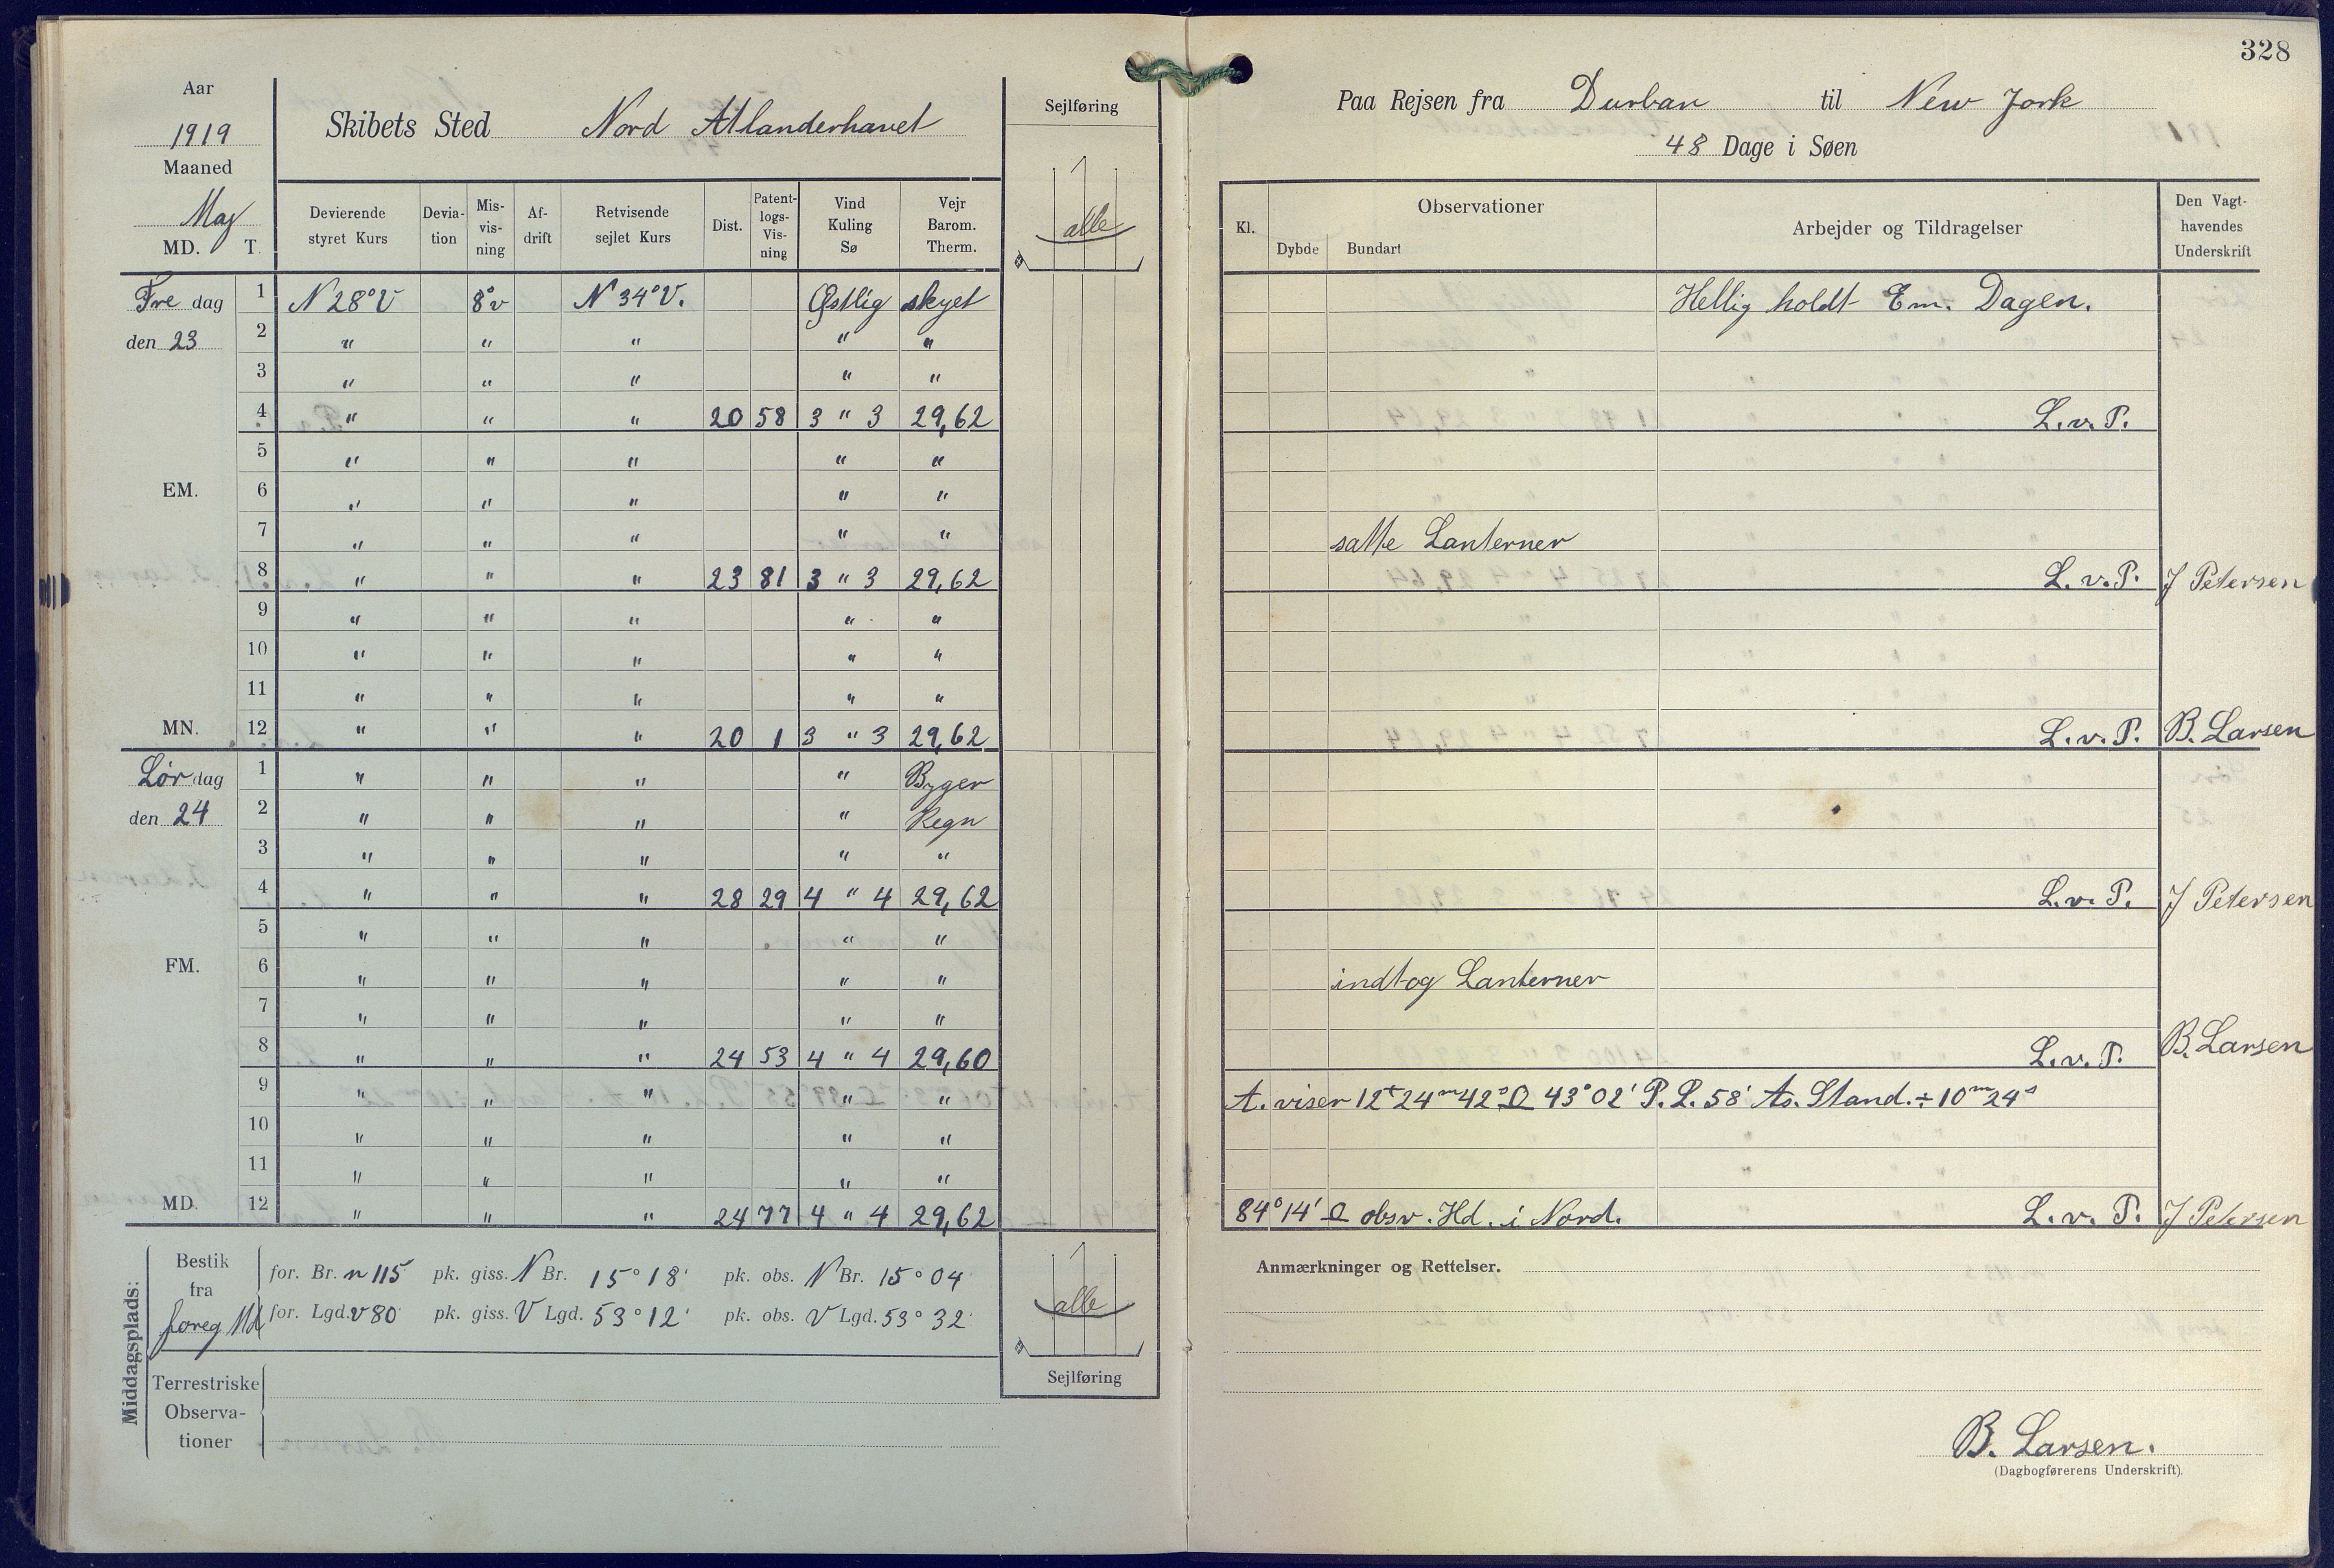 328
Aar
1919
Maaned
Maj
MD. T.
Skibets Sted Nord Atlanderhavet
Sejlføring
alle
Devierende styret Kurs
Devia- tion
Mis- vis- ning
Af- drift
Retvisende sejlet Kurs
Dist.
Patent- logs- Vis- ning
Vind Kuling Sø
Vejr Barom. Therm.
Fre dag 1 N 28° V 8° v N 34° V. Østlig skyet
den 23 2 " " " " "
3 " " " " "
4 " " " 20 58 3 " 3 29,62
5 " " " " "
EM. 6 " " " " "
7 " " " " "
8 " " " 23 81 3 " 3 29,62
9 " " " " "
10 " " " " "
11 " " " " "
MN. 12 " " " 20 1 3 " 3 29,62
Lør dag 1 " " " " Byger
den 24 2 " " " " Regn
3 " " " " "
4 " " " 28 29 4 " 4 29,62
5 " " " " "
FM. 6 " " " " "
7 " " " " "
8 " " " 24 53 4 " 4 29,60
9 " " " " "
10 " " " " "
11 " " " " "
MD. 12 " " " 24 77 4 " 4 29,62
Middagsplads:
Bestik fra foreg Md
for. Br. n 115 pk. giss. N Br. 15° 18' pk. obs. N Br. 15° 04'
for. Lgd. v 80' pk. giss. V Lgd. 53° 12' pk. obs. V Lgd. 53° 32'
Terrestriske
Observa-
tioner
alle
Sejlføring
Paa Rejsen fra Durban til New Jork
48 Dage i Søen
Kl.
Observationer
Dybde Bundart
Arbejder og Tildragelser
Den Vagt-
havendes
Underskrift
Hellig holdt Em. Dagen.
L. v. P.
satte Lanterner
L. v. P. J Petersen
L. v. P. B. Larsen
L. v. P. J Petersen
indtog Lanterner
L. v. P. B. Larsen
A. viser 12t 24m 42s ☉ 43° 02' P. L. 58' As. Stand. ÷ 10m 24s
84° 14' ☉ obsv. Hd. i Nord. L. v. P. J Petersen
Anmærkninger og Rettelser.
B. Larsen.
(Dagbogførerens Underskrift).